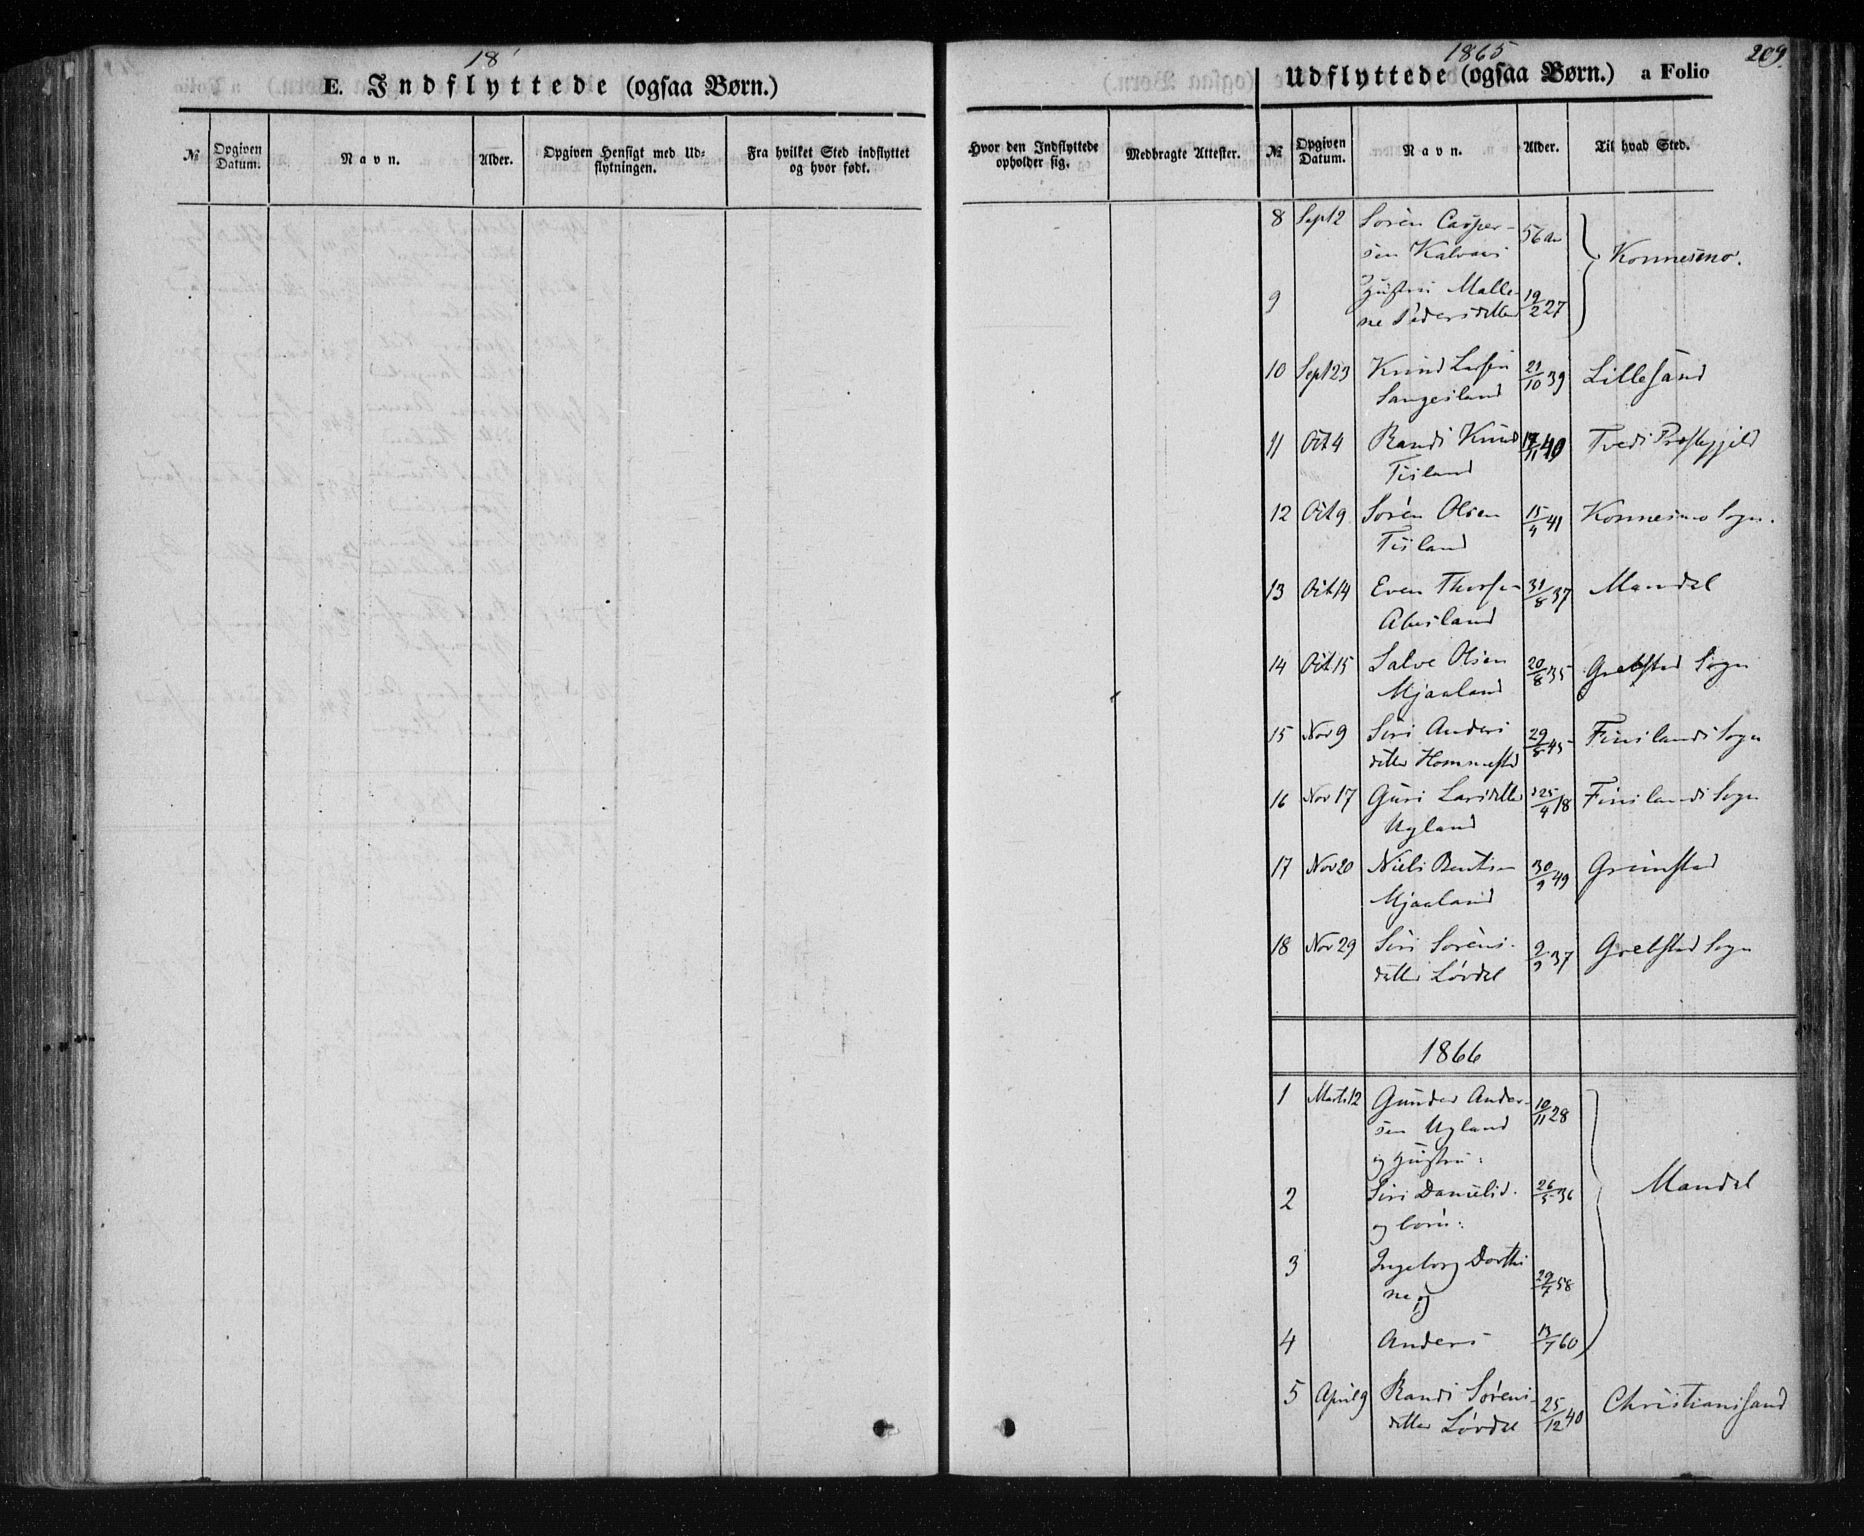 18
E. Indflyttede (ogsaa Børn.)
№
Opgiven Datum.
Navn.
Alder.
Opgiven Hensigt med Udflytningen.
Fra hvilket Sted indflyttet og hvor født.
1865
209.
Udflyttede (ogsaa Børn.) a Folio
Hvor den Indflyttede opholder sig.
Medbragte Attester.
№
Opgiven Datum.
Navn.
Alder.
Til hvad Sted.
8 Sept 12 Søren Casper- 56 Konnesmo.
sen
9 Hustru Malle- 19/2 27
ne Pedersdatter
10 Sept 23 Knud 21/10 39 Lillesand
11 Oct 4 Randi Knud 17/11 40 Tvedt Præstegjeld
Tisland
12 Oct 9 Søren Olsen 15/4 41 Konnesmo Sogn.
Tisland
13 Oct 14 Even 31/8 37 Mandal
Abusland
14 Oct 15 Salve Olsen 20/8 35 Sogn
Mjaaland
15 Nov 9 Siri Anders 29/8 45 Finslands Sogn
datter Hommestad
16 Nov 17 Guri Larsdatter 25/4 18 Finslands Sogn
Ugland
17 Nov 20 Niels Bentsen 30/9 49 Grimstad
Mjaaland
18 Nov 29 Siri Sørens- 9/9 37 Sogn
datter Løvdal
1866
1 Marts 12 Gunder Ander- 10/11 28 Mandal
sen Ugland
og Hustru:
2 Siri Danielsd. 26/5 36
og børn:
3 Ingeborg Dorthi
ne og 29/7 58
4 Anders 13/7 60
5 April 9 Randi Sørens- Christianssand
datter Løvdal 25/12 40